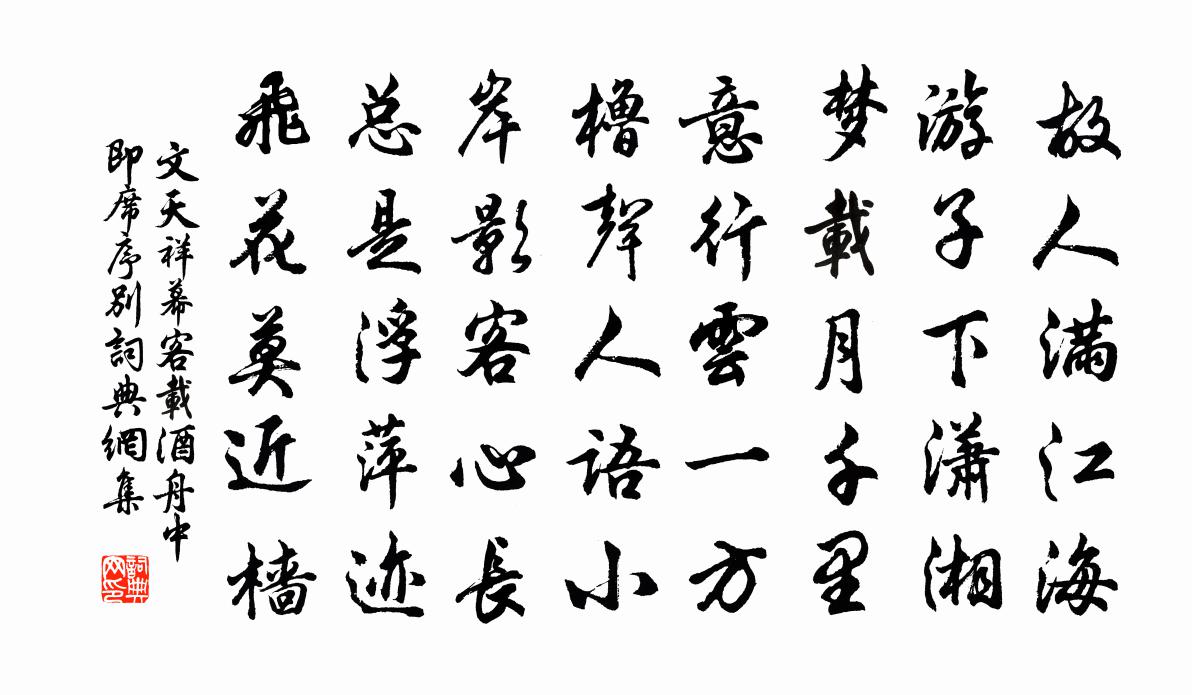 故人满江海
游子下潇湘
梦載月千里
意行雲一方
櫓聲人語小
岸影客心長
总是浮萍迹
飛花莫近檣
文天祥幕客載酒舟中
即席序别詞典網集
詞典网印